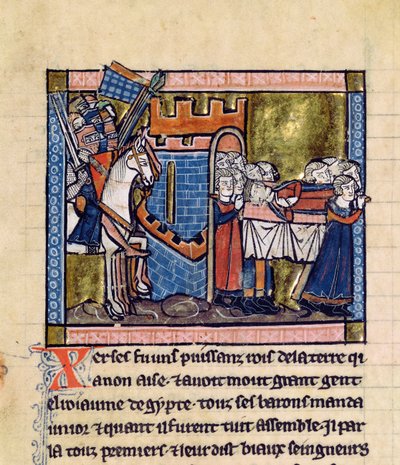 Xerses fu uns puissanz rois de la terre qi
anon aise · ⁊ auoit mout grant gent
el roiaume degypte · touz ses barons manda
un ior ⁊ quant il furent tuit assemble · Il par
la touz premiers ⁊ leur dist biaux seingneurs